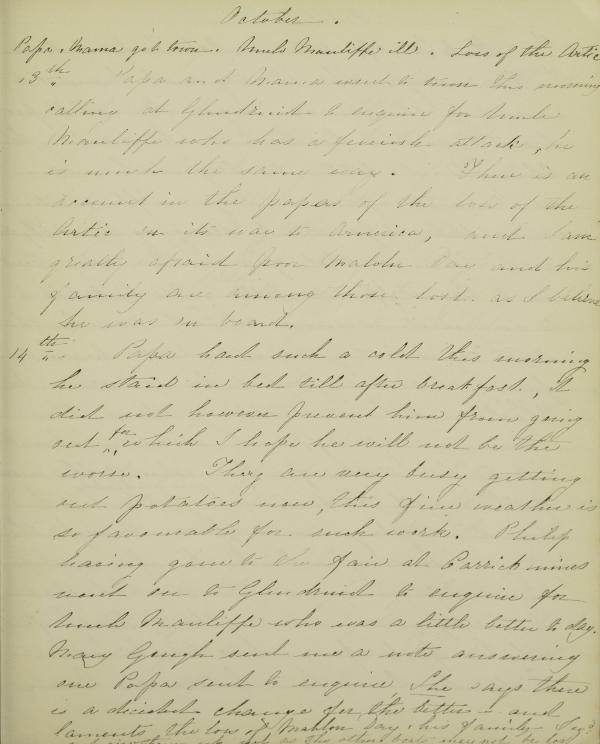 October.
Papa & Mama go to town. Uncle Mauliffe ill. Loss of the Artic
13th Papa and Mama went to town this morning
calling at Glendruid to enquire for Uncle
Mauliffe who has a feverish attack, he
is much the same way. There is an
account in the papers of the loss of the
Artic on its way to America, and I am
greatly afraid poor Mahlon Day and his
family are among those lost as I believe
he was on board.
14th Papa had such a cold this morning
he staid in bed till after breakfast, It
did not however prevent him from going
out for which I hope he will not be the
worse. They are very busy getting
out potatoes now, this fine weather is
so favourable for such work. Philip
having gone to the fair at Carrickmines
went on to Glendruid to enquire for
Uncle Mauliffe who was a little better to day.
Mary Gough sent me a note answering
one Papa sent to enquire, She says there
is a decided change for the better and
laments the loss of Mahlon Day & his family